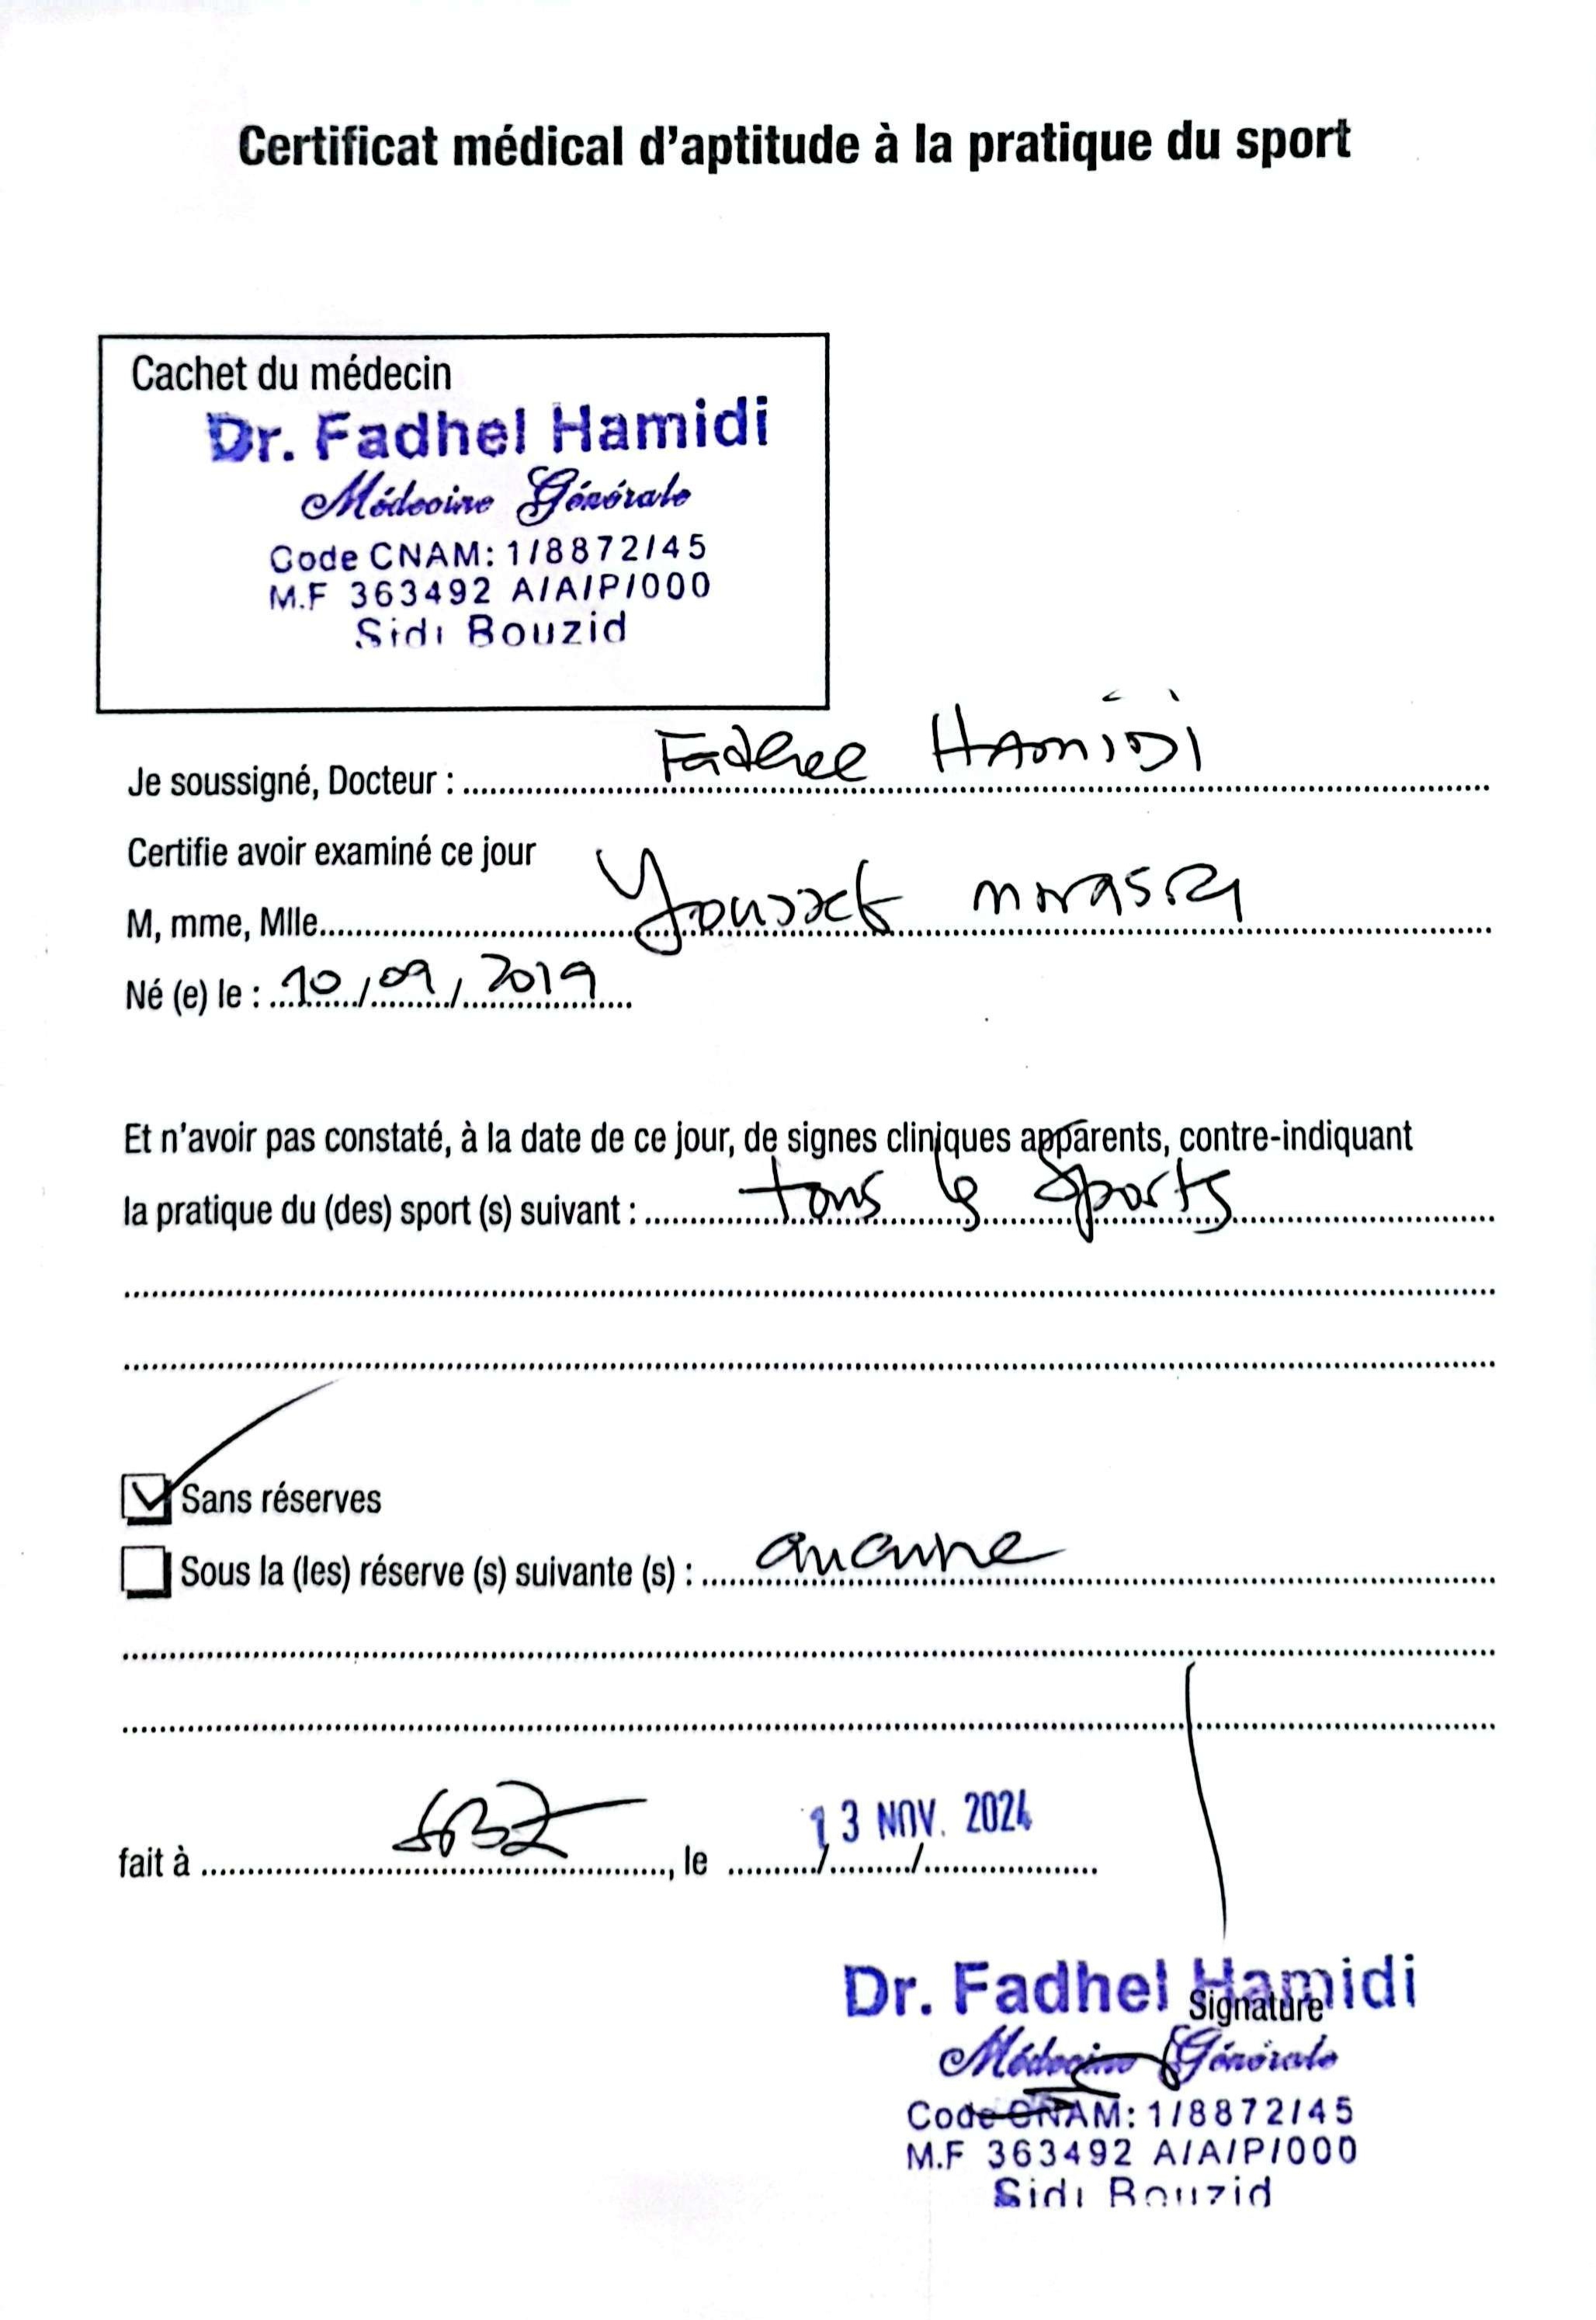 Certificat médical d'aptitude à la pratique du sport
Cachet du médecin
Dr. Fadhel Hamidi
Médecine Générale
Code CNAM: 1/8872/45
M.F 363492 A/A/P/000
Sidi Bouzid
Je soussigné, Docteur : Fadhel HAmiDi
Certifie avoir examiné ce jour
M, mme, Mlle Youssef
Né (e) le : 10/09/2019
Et n'avoir pas constaté, à la date de ce jour, de signes cliniques apparents, contre-indiquant
la pratique du (des) sport (s) suivant : tous les sports
Sans réserves
Sous la (les) réserve (s) suivante (s) : aucune
fait à SBZ, le 13 NOV. 2024
Dr. Fadhel Hamidi
Signature
Médecine Générale
Code CNAM: 1/8872/45
M.F 363492 A/A/P/000
Sidi Bouzid